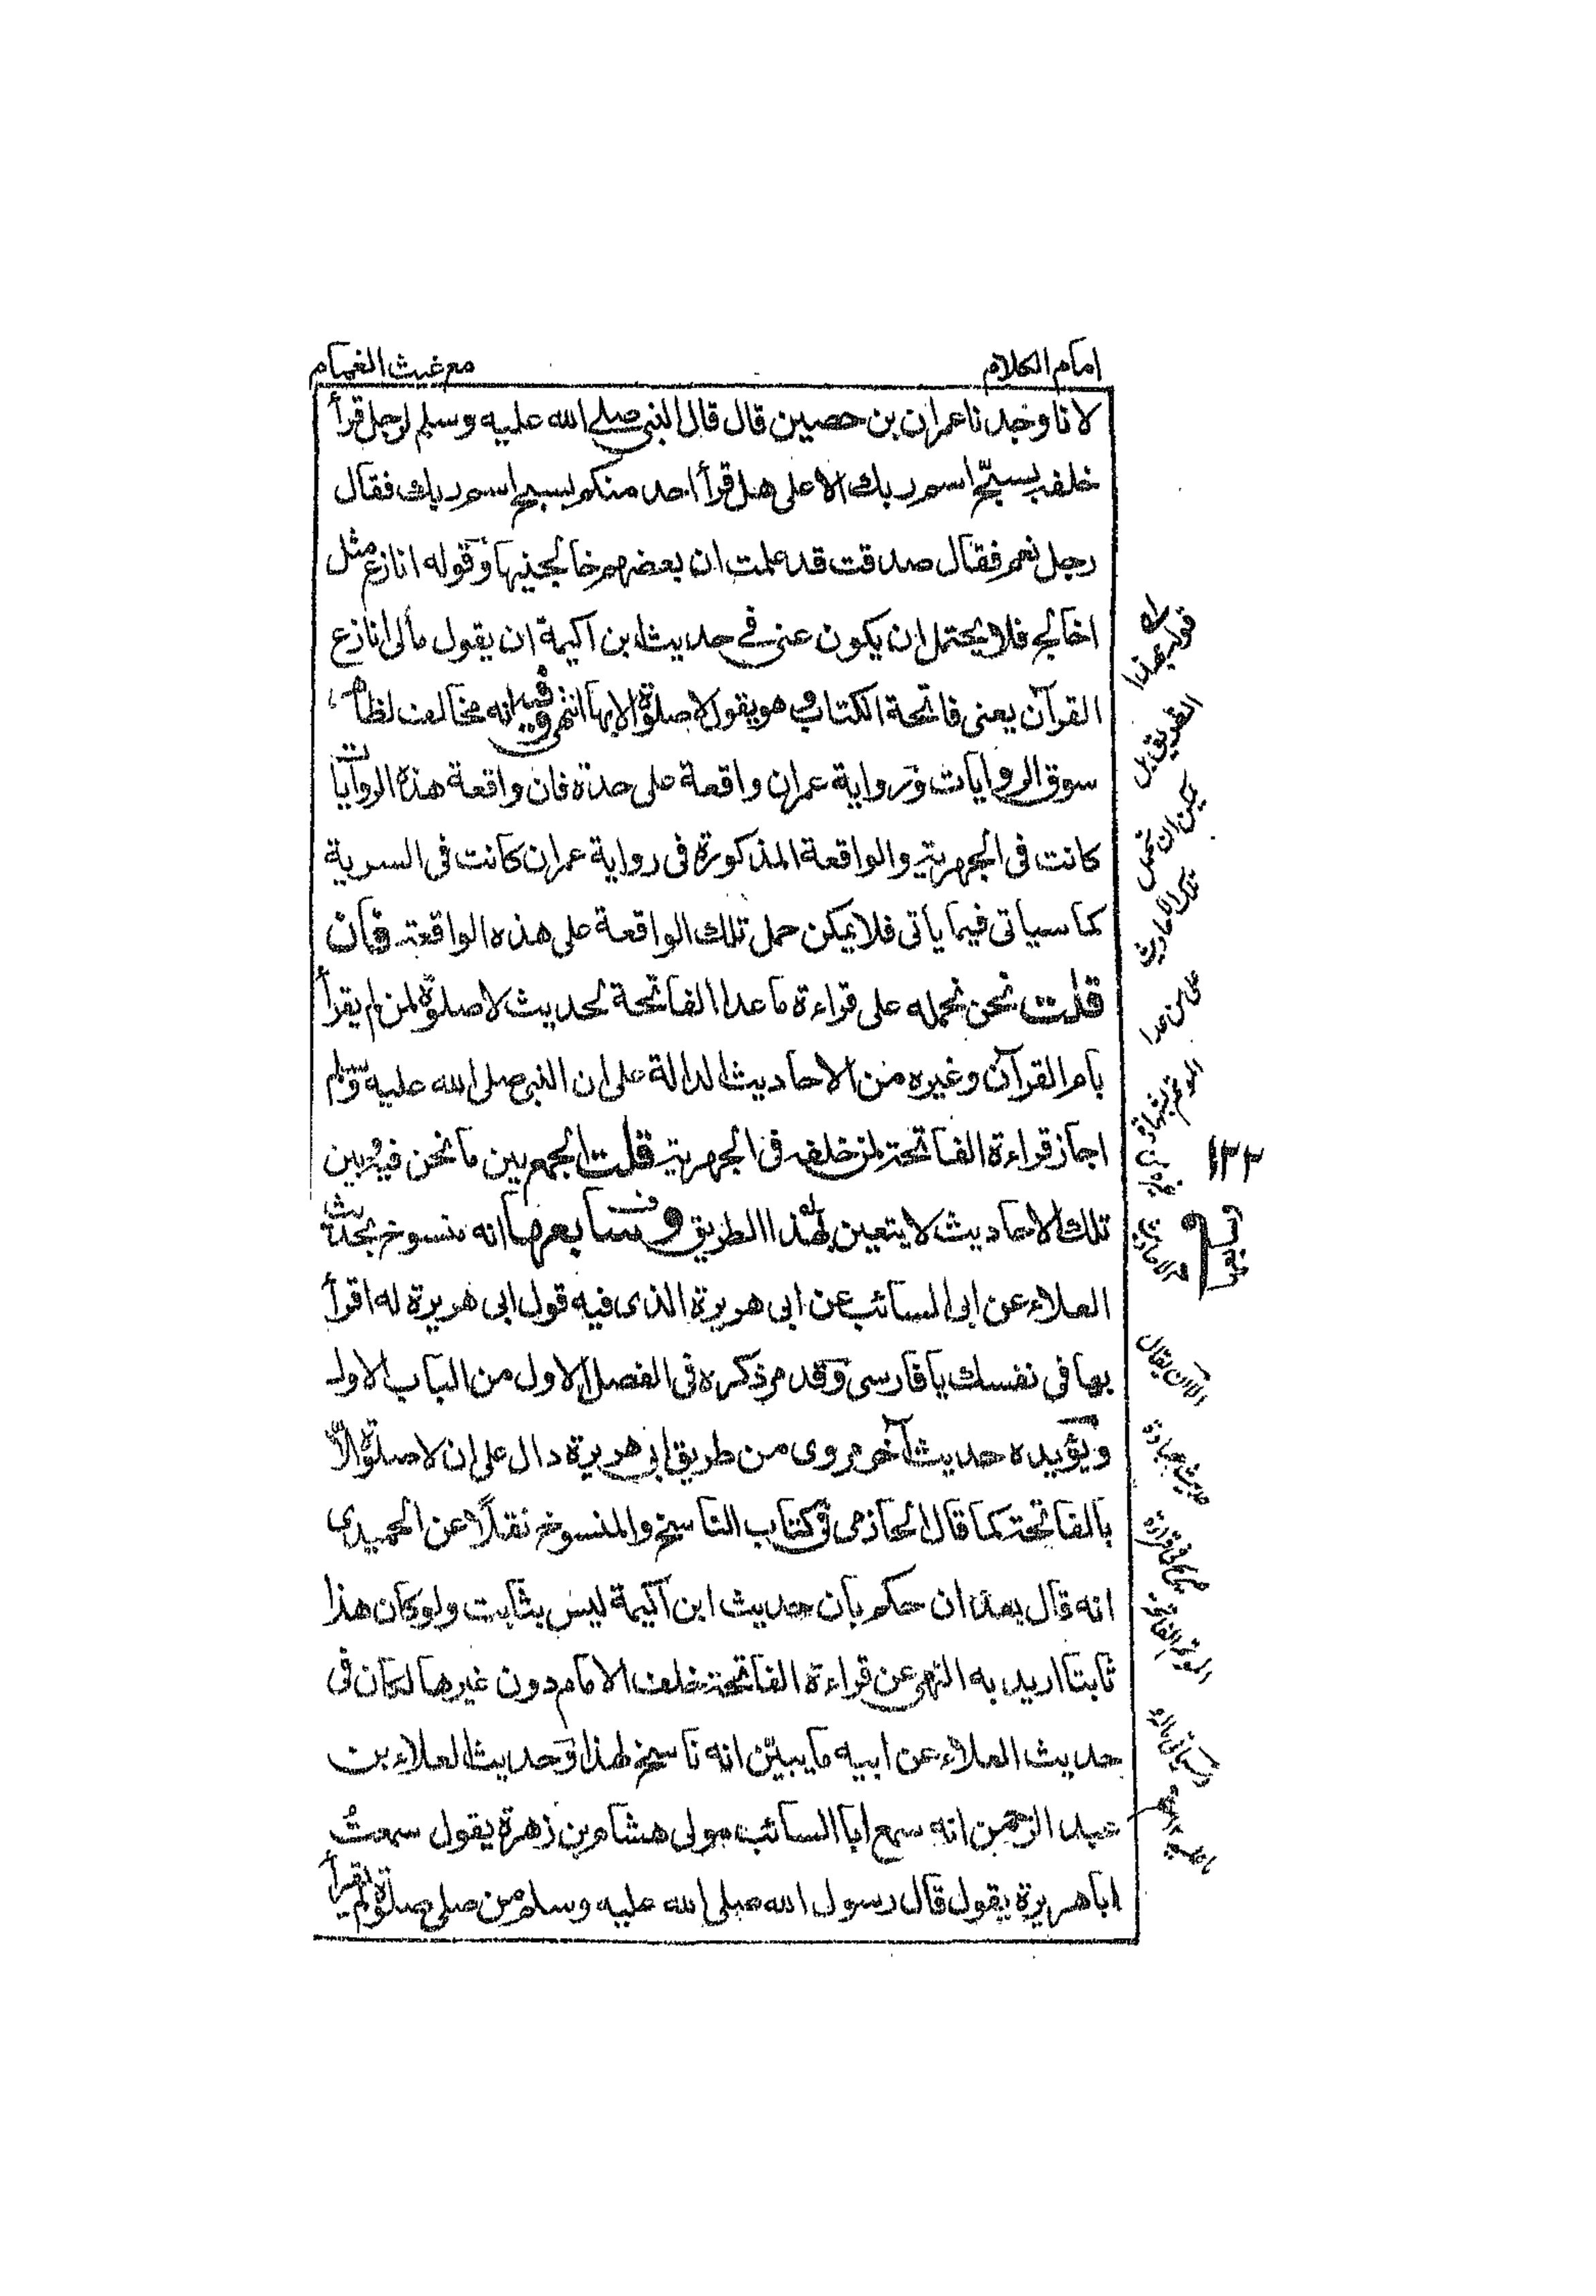 امام الكلام
مع غيث الغمام
لانا وجدنا عمران بن حصين قال قال النبى صلے الله عليه وسلم لرجل قرأ
خلفه بسبّح اسم ربك الاعلى هل قرأ احد منكم بسبح اسم ربك فقال
رجل نعم فقال صدقت قد علمت ان بعضهم خالجنيها وقوله انازع مثل
اخالج فلا يحتمل ان يكون عنى فے حديث ابن اكيمة ان يقول مالى انازع
القرآن يعنى فاتحة الكتاب وهو يقول لا صلوة الا بها انتهى وفيه انه مخالف لظاهر
سوق الروايات ورواية عمران واقعة على حدة فان واقعة هذه الروايات
كانت فى الجهرية والواقعة المذكورة فى رواية عمران كانت فى السرية
كما سياتى فيما يأتى فلا يمكن حمل تلك الواقعة على هذه الواقعة فان
قلت نحن نحمله على قراءة ما عدا الفاتحة لحديث لا صلوة لمن لم يقرأ
بام القرآن وغيره من الاحاديث الدالة على ان النبى صلى الله عليه وسلم
اجاز قراءة الفاتحة لمن خلفه فى الجهرية قلت الجمع بين ما نحن فيه وبين
تلك الاحاديث لا يتعين بهذا الطريق وسابعها انه منسوخ بحديث
العلاء عن ابى السائب عن ابى هريرة الذى فيه قول ابى هريرة له اقرأ
بها فى نفسك يا فارسى وقد مر ذكره فى الفصل الاول من الباب الاول
ويؤيده حديث آخر مروى من طريق ابى هريرة دال على ان لا صلوة الا
بالفاتحة كما قال الحازمى فى كتاب الناسخ والمنسوخ نقلًا عن الحميدى
انه قال بعد ان حكم بان حديث ابن اكيمة ليس بثابت ولو كان هذا
ثابتا اريد به النهى عن قراءة الفاتحة خلف الامام دون غيرها لكان فى
حديث العلاء عن ابيه ما يبيّن انه ناسخ لهذا وحديث العلاء بن
عبد الرحمن انه سمع ابا السائب مولى هشام بن زهرة يقول سمعتُ
ابا هريرة يقول قال رسول الله صلى الله عليه وسلم من صلى صلوة لم يقرأ
قوله بهذا
الطريق بل
يمكن ان تحمل
تلك الاحاديث
على من عدا
١٣٢
الا ان يقال
حديث عبادة